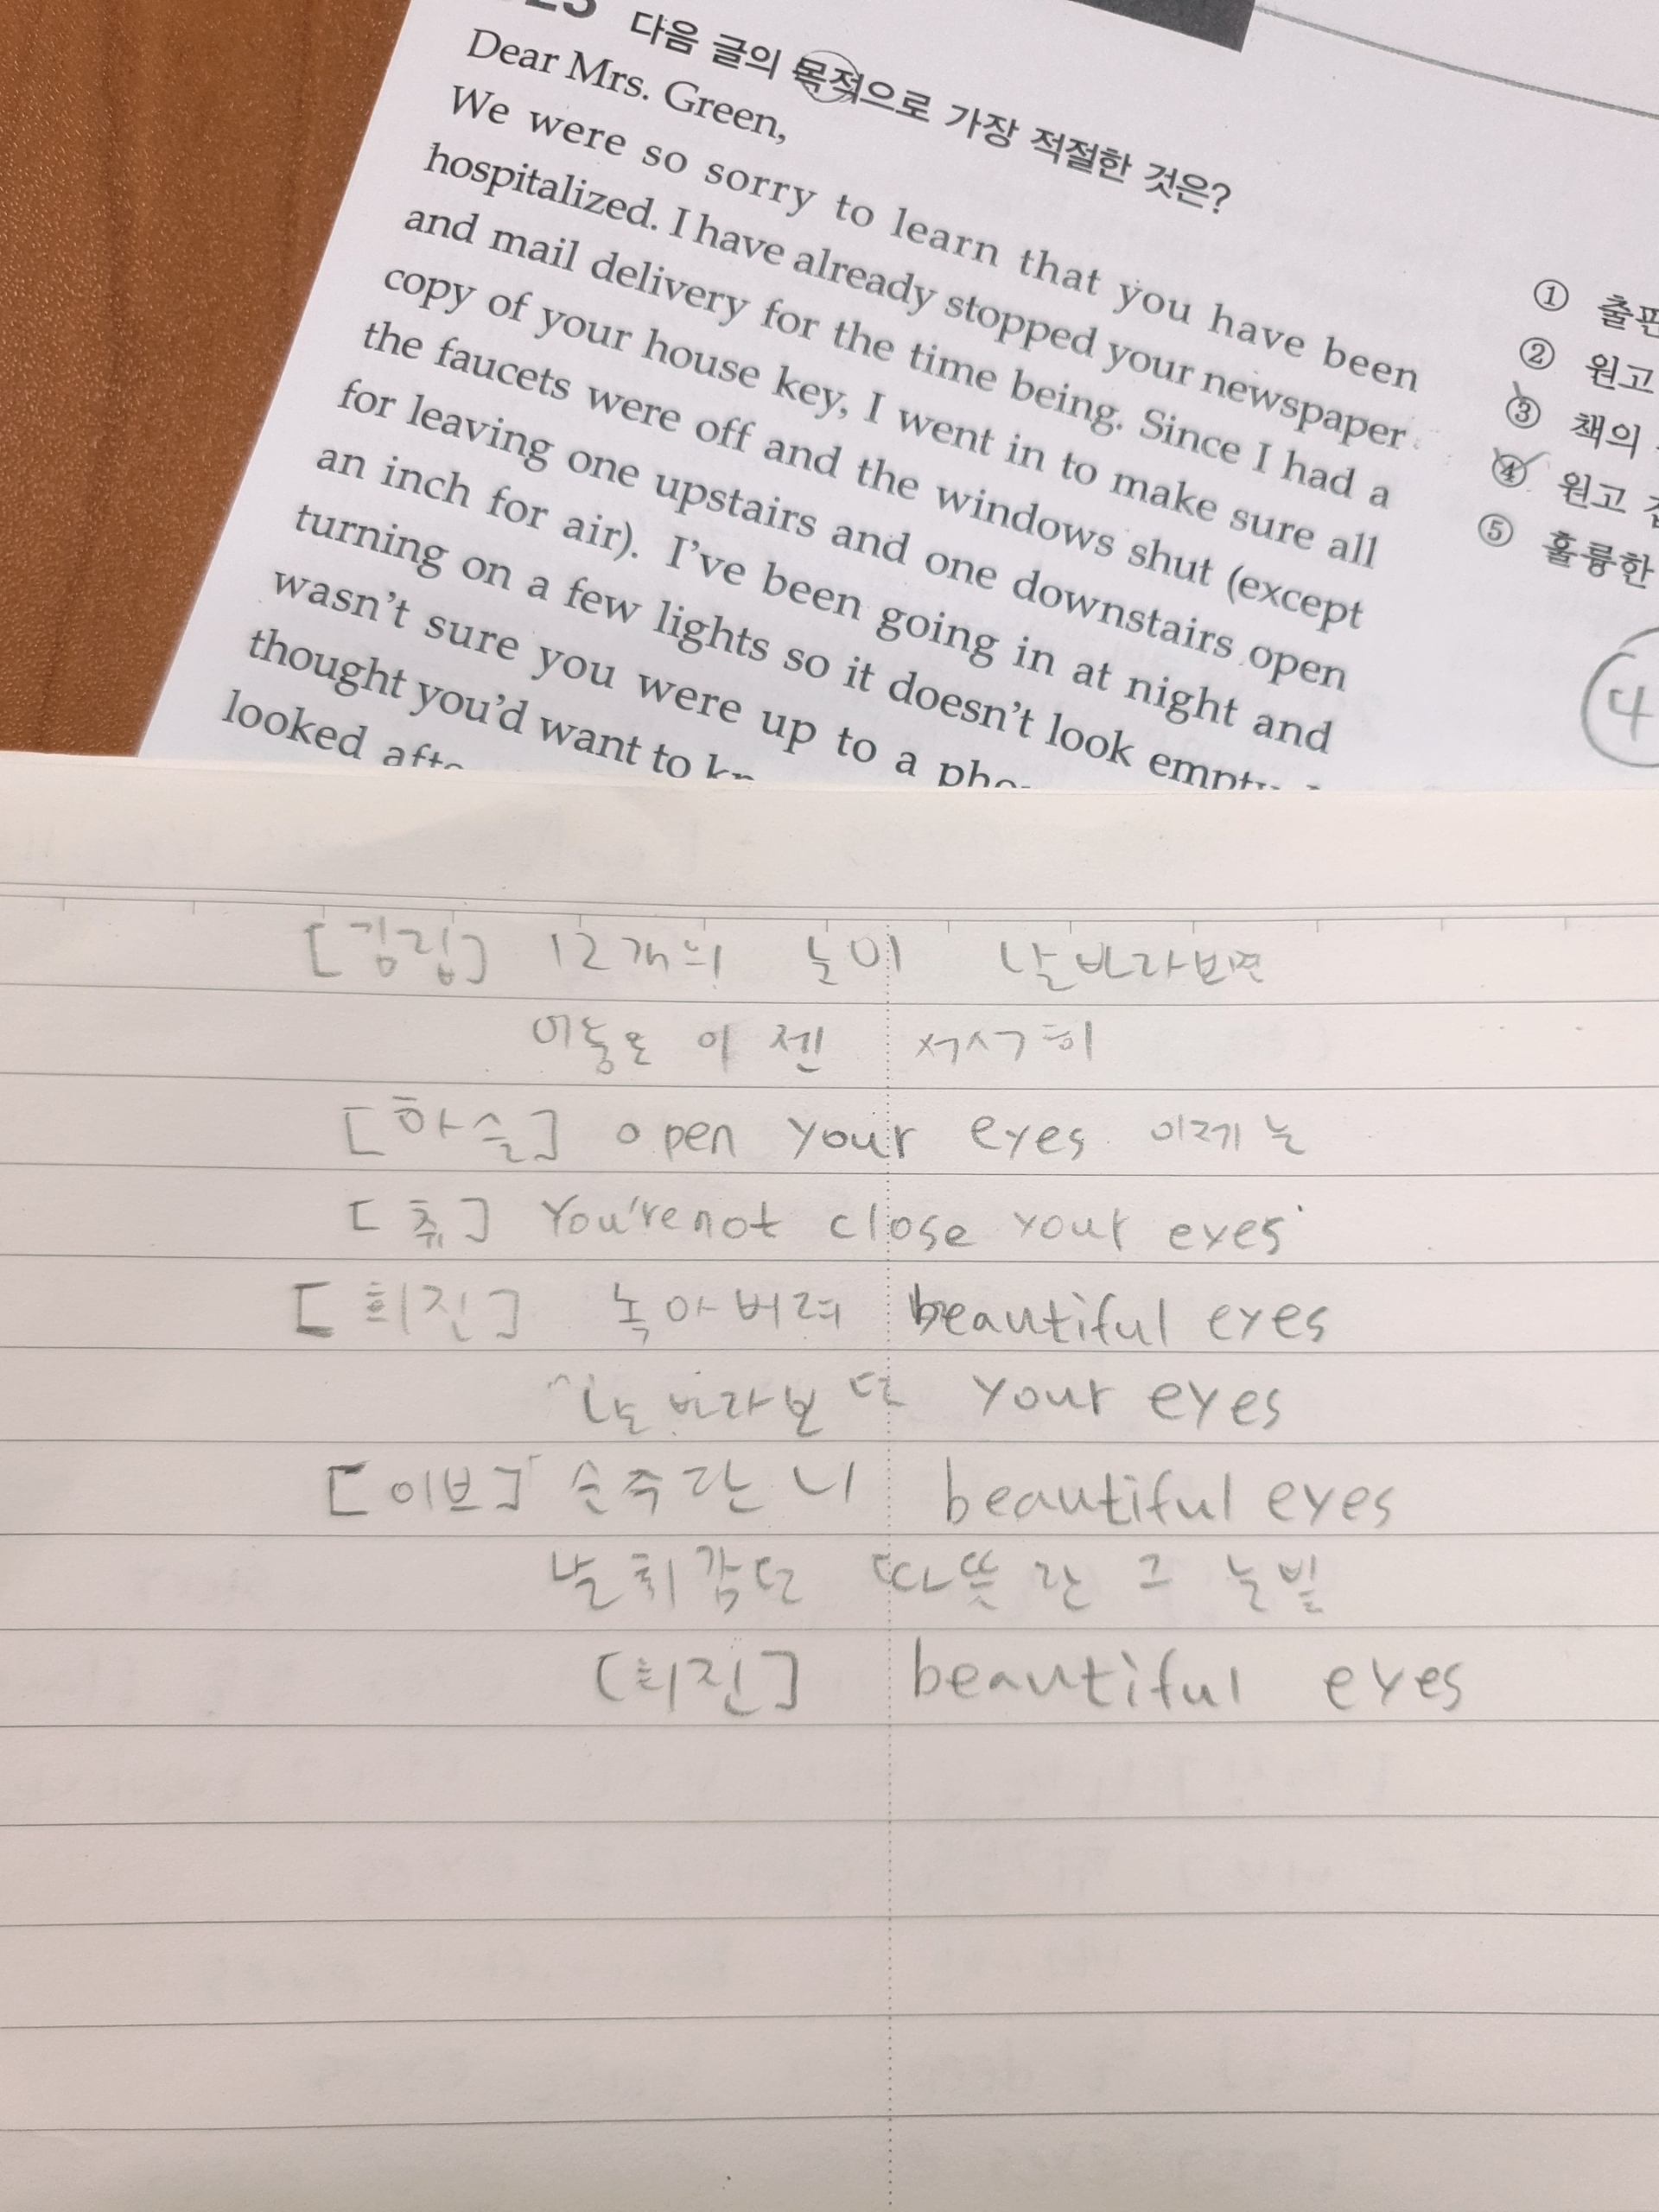 다음 글의 목적으로 가장 적절한 것은?
Dear Mrs. Green,
We were so sorry to learn that you have been
hospitalized. I have already stopped your newspaper
and mail delivery for the time being. Since I had a
copy of your house key, I went in to make sure all
the faucets were off and the windows shut (except
for leaving one upstairs and one downstairs open
an inch for air). I've been going in at night and
turning on a few lights so it doesn't look empty.
wasn't sure you were up to a
thought you'd want to
looked
①
② 원고
③ 책의
④ 원고
⑤ 훌륭한
4
[김립] 12개의 눈이 날 바라보면
어둠은 이젠 서서히
[하슬] open your eyes 이제 눈
[츄] You're not close your eyes
[희진] 녹아버려 beautiful eyes
바라보던 your eyes
[이브] 순수한 니 beautiful eyes
날 휘감던 따뜻한 그 눈빛
[희진] beautiful eyes